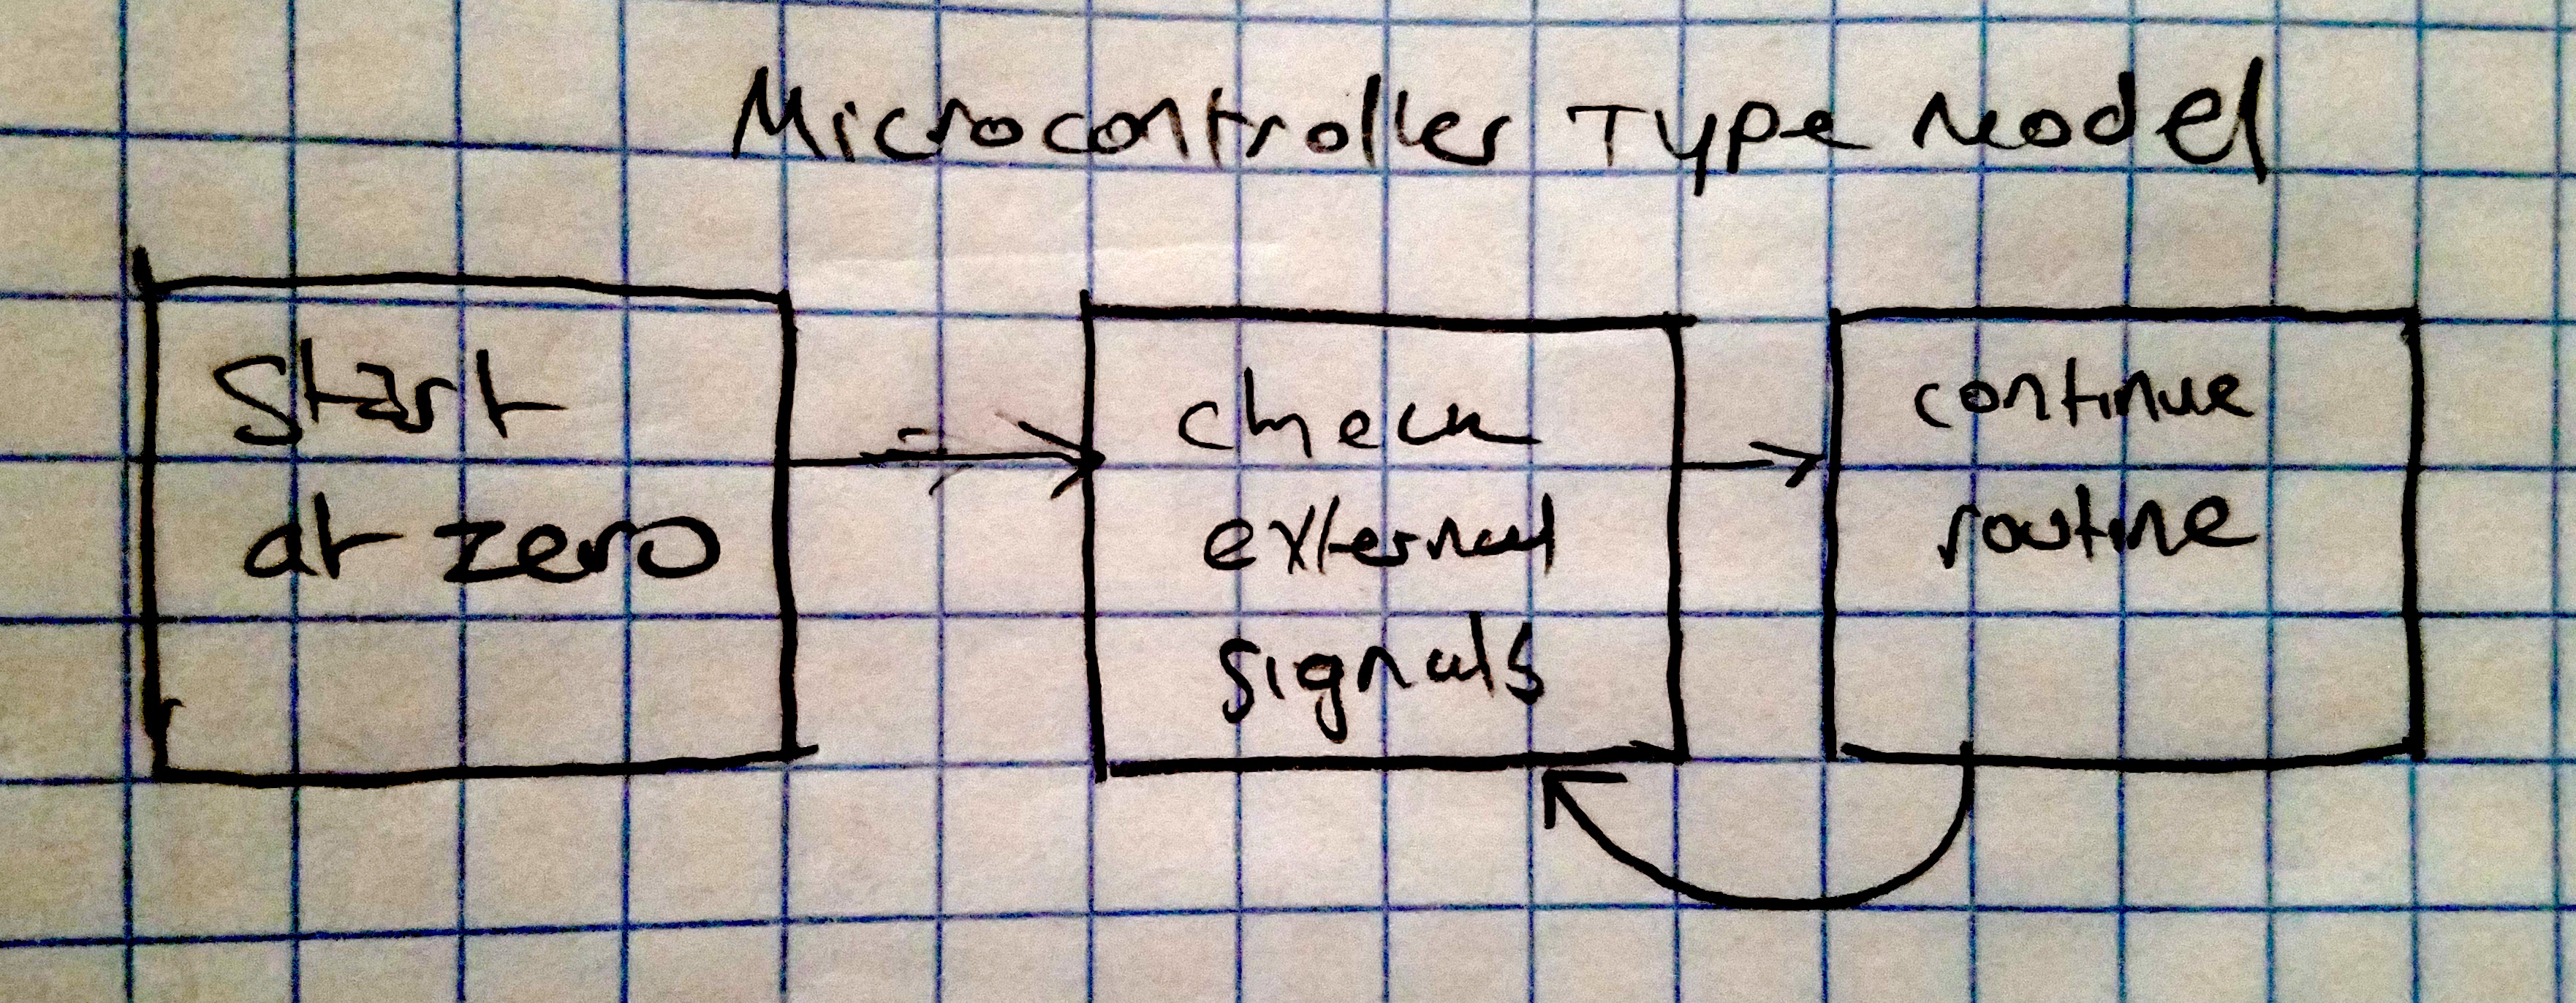 Microcontroller Type Model
Start
at zero
check
external
signals
continue
routine